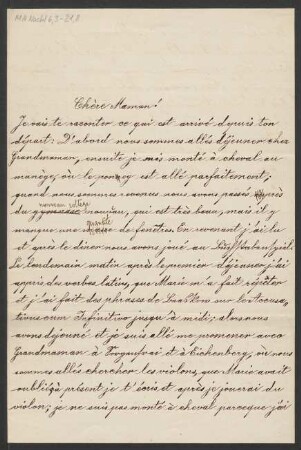 Chère Maman!
Je vais te raconter ce qui est arrivé depuis ton
départ: D'abord nous sommes allés déjeuner chez
Grandmaman, ensuite je suis monté à cheval au
manège, où le poney est allé parfaitement;
quand nous sommes revenus nous avons passés près
du nouveau collège, qui est très beau, mais il y
manque une quantité de fenêtres. En revenant j'ai lu
et après le diner nous avons joué au
Le lendemain matin après le premier déjeuner j'ai
appris des verbes latins, que Marie m'a fait répéter
et j'ai fait des phrases de sur les
cum Infinitivo jusqu'à midi; alors nous
avons déjeuné et je suis allé me promener avec
Grandmaman à et à Eichenberg, où nous
sommes allés chercher les violons, que Marie avait
oubliés; à présent je t'écris et après je jouerai du
violon; je ne suis pas monté à cheval parceque j'ai